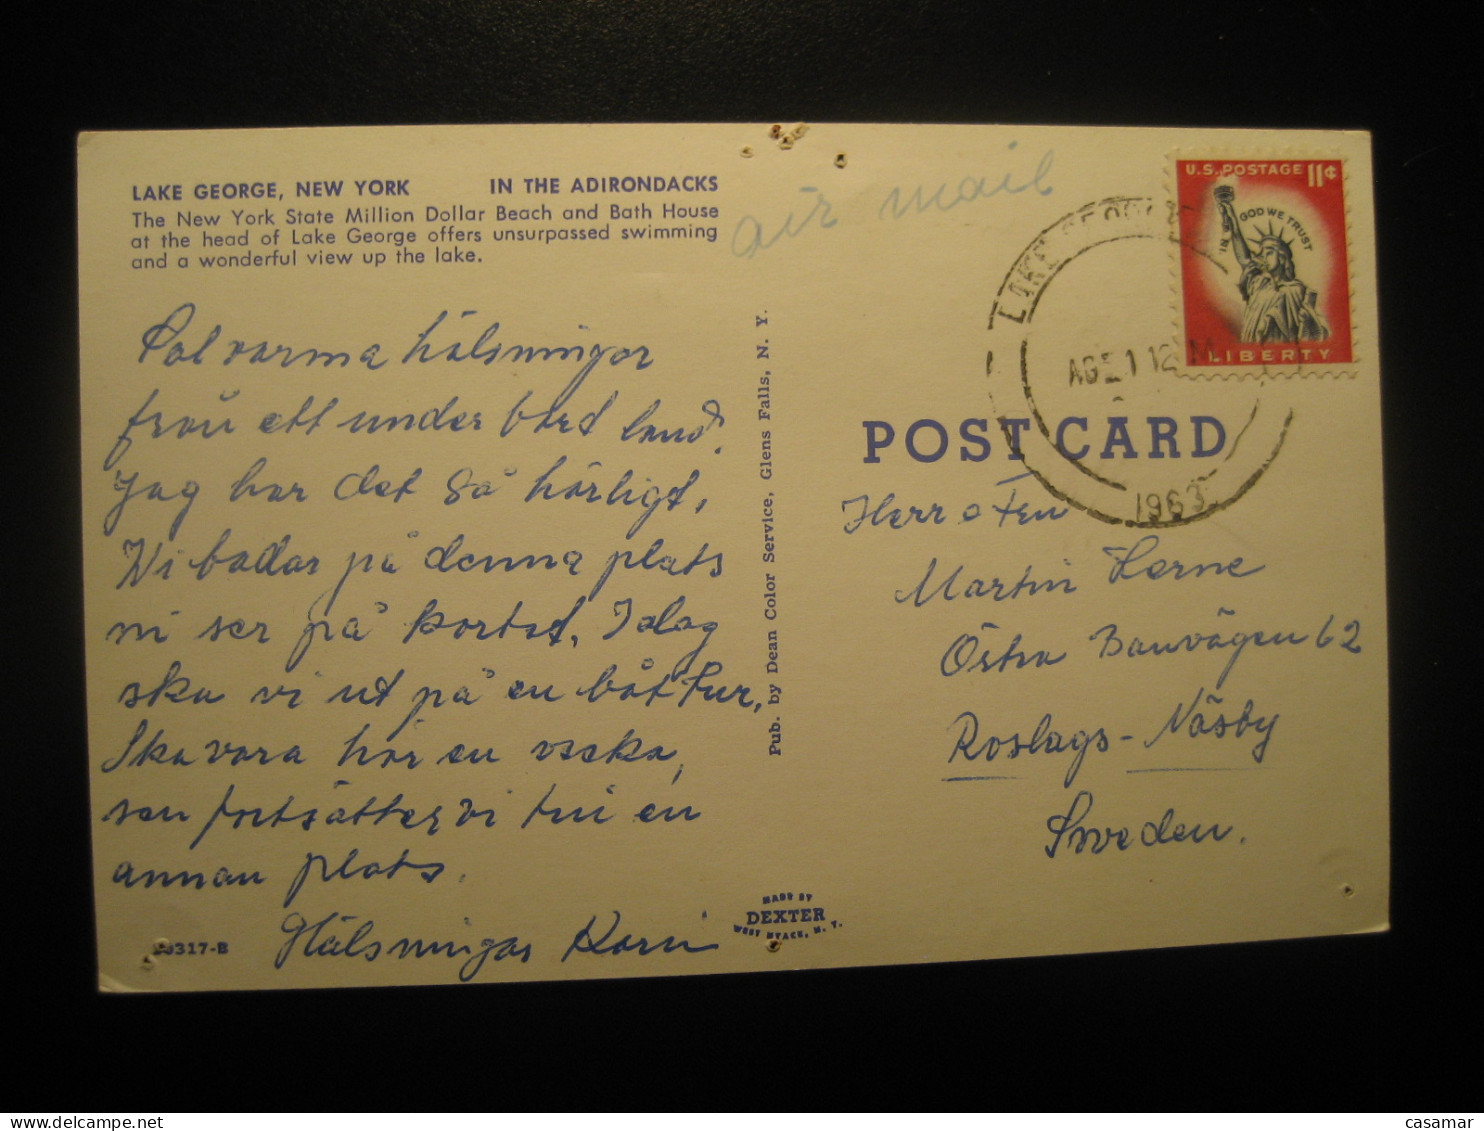 LAKE GEORGE, NEW YORK IN THE ADIRONDACKS
The New York State Million Dollar Beach and Bath House
at the head of Lake George offers unsurpassed swimming
and a wonderful view up the lake.
air mail
varma hälsningar
från ett under bart land.
Jag har det så härligt,
Vi badar på denna plats
ni ser på kortet, Idag
ska vi ut på en båttur,
Ska vara här en vecka,
sen fortsätter vi till en
annan plats.
Hälsningar Karin
20317-B
Pub. by Dean Color Service, Glens Falls, N. Y.
MADE BY
DEXTER
WEST NYACK, N. Y.
U.S. POSTAGE 11¢
IN GOD WE TRUST
LIBERTY
LAKE GEORGE
1 12 M
1963
POST CARD
Herr o Fru
Martin Lerne
Östra Banvägen 62
Roslags-Näsby
Sweden.
casamar
delcampe.net